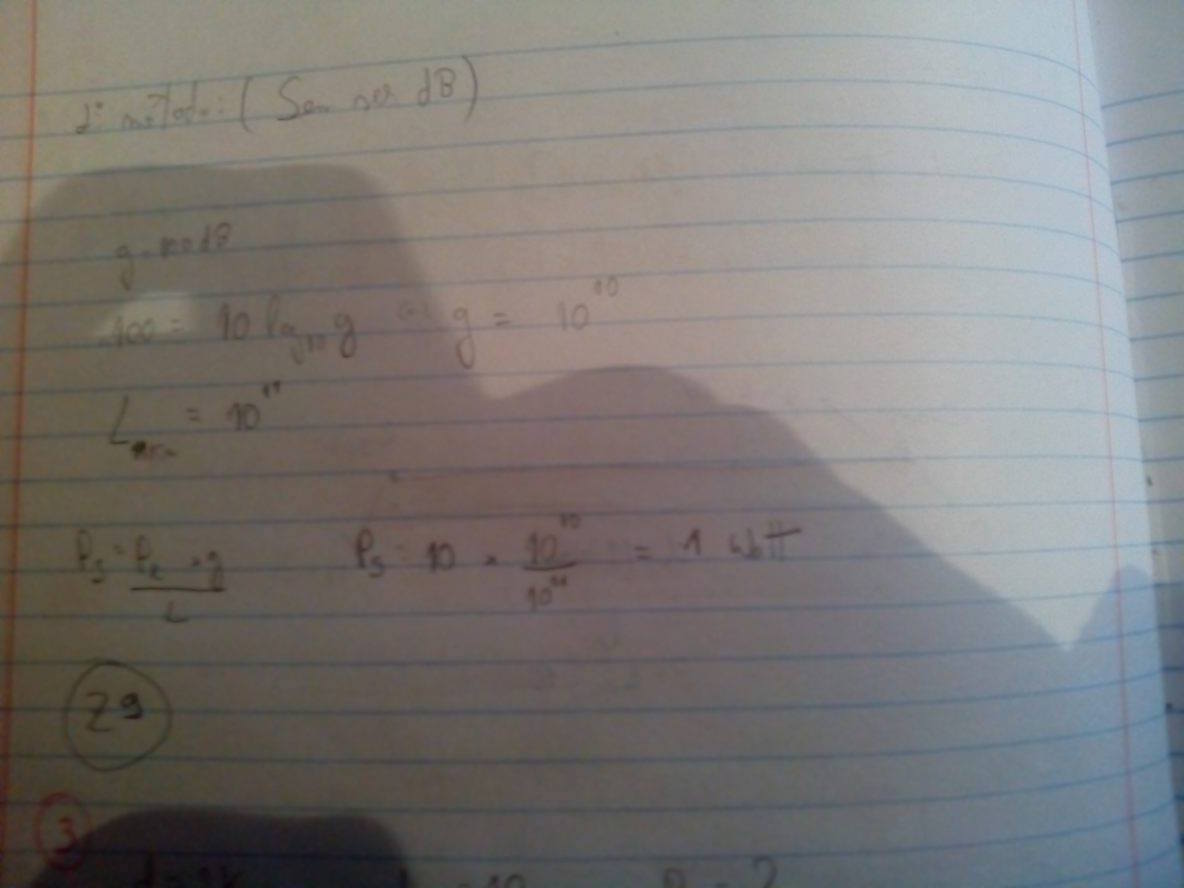 2º método: (Sem ser dB)
g = 100 dB
100 = 10 log₁₀ g g = 10¹⁰
L = 10¹¹
Ps = Pe × g / L Ps = 10 × 10¹⁰ / 10¹¹ = 1 Watt
29
3